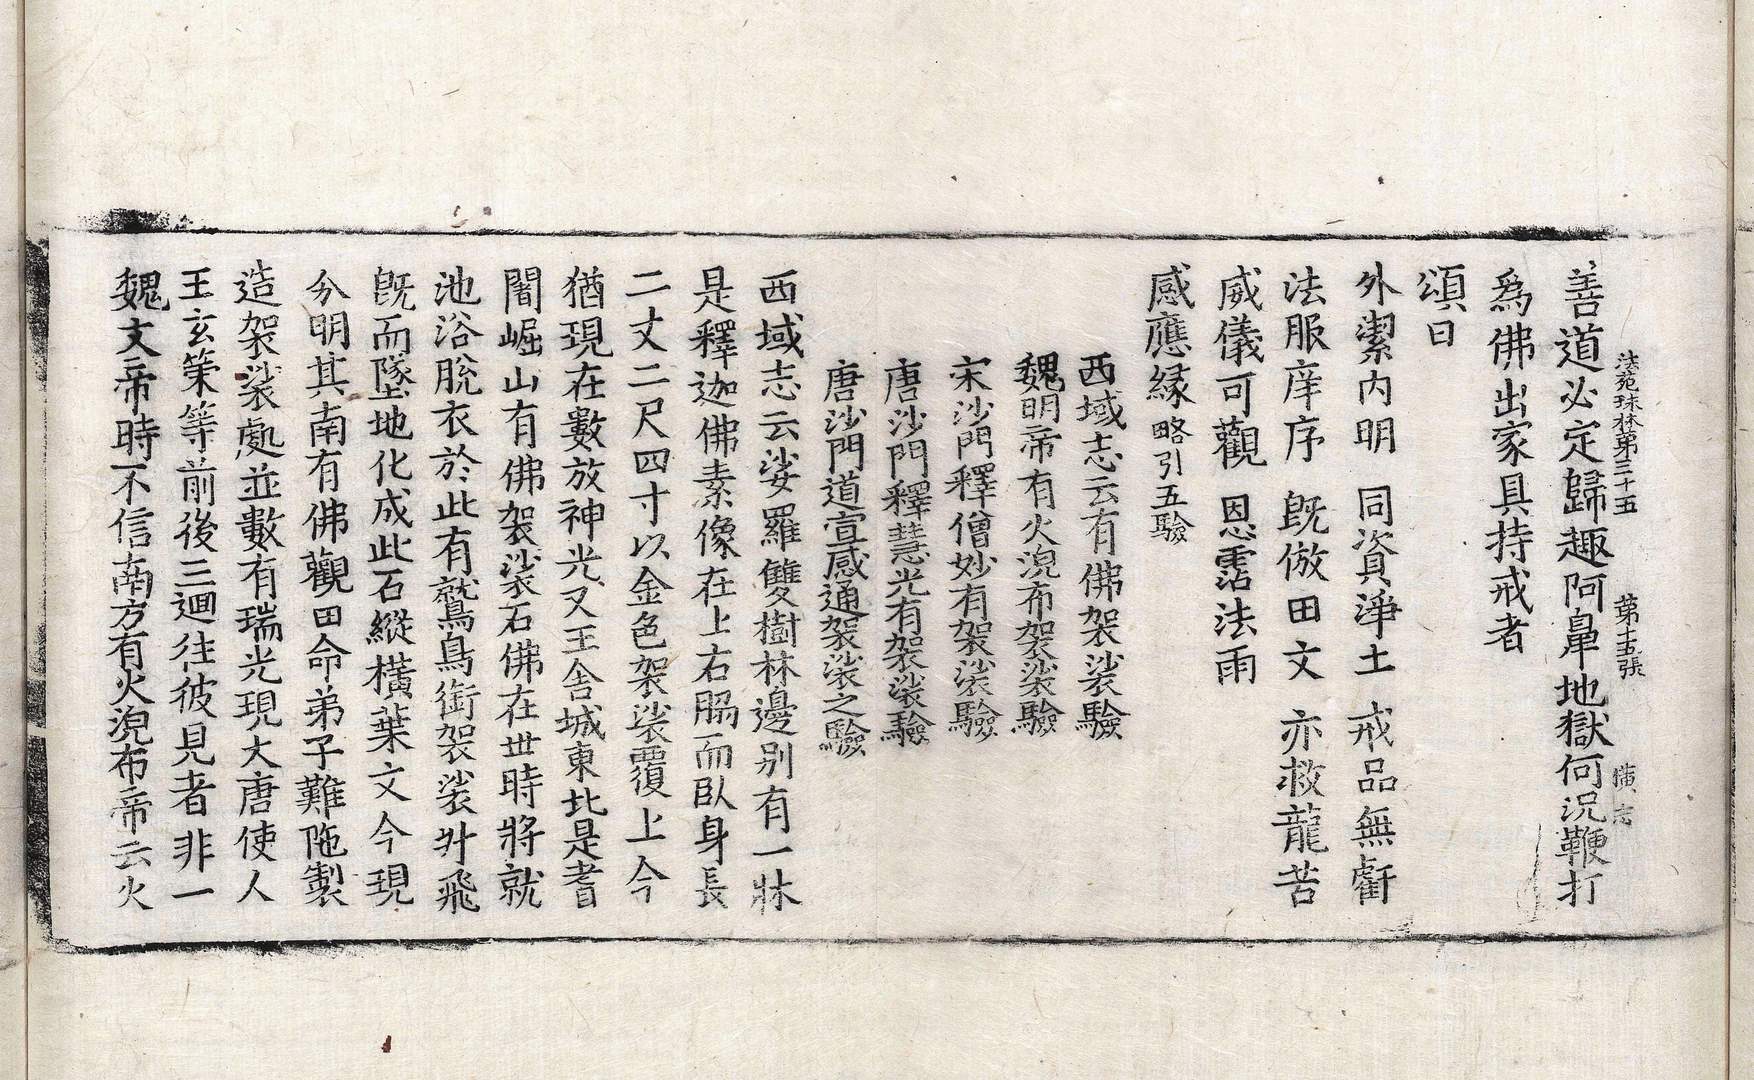 法苑珠林第三十五　第十五張
善道必定歸趣阿鼻地獄何況鞭打
為佛出家具持戒者
頌曰
外潔內明　同資淨土　戒品無虧
法服庠序　既倣田文　亦救龍苦
威儀可觀　恩霑法雨
感應緣略引五驗
西域志云有佛袈裟驗
魏明帝有火浣布袈裟驗
宋沙門釋僧妙有袈裟驗
唐沙門釋慧光有袈裟驗
唐沙門道宣感通袈裟之驗
西域志云娑羅雙樹林邊別有一牀
是釋迦佛素像在上右脇而臥身長
二丈二尺四寸以金色袈裟覆上今
猶現在數放神光又王舍城東北是耆
闍崛山有佛袈裟石佛在世時將就
池浴脫衣於此有鷲鳥銜袈裟升飛
既而墜地化成此石縱橫葉文今現
分明其南有佛觀田命弟子難陁製
造袈裟處並數有瑞光現大唐使人
王玄策等前後三迴往彼見者非一
魏文帝時不信南方有火浣布帝云火